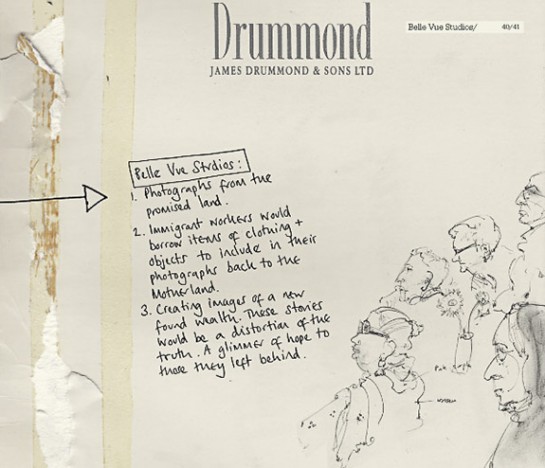 Drummond
JAMES DRUMMOND & SONS LTD
Belle Vue Studios/ 40/41
Belle Vue Studios:
1. Photographs from the
promised land.
2. Immigrant workers would
borrow items of clothing +
objects to include in their
photographs back to the
Motherland.
3. Creating images of a new
found wealth. These stories
would be a distortion of the
truth. A glimmer of hope to
those they left behind.